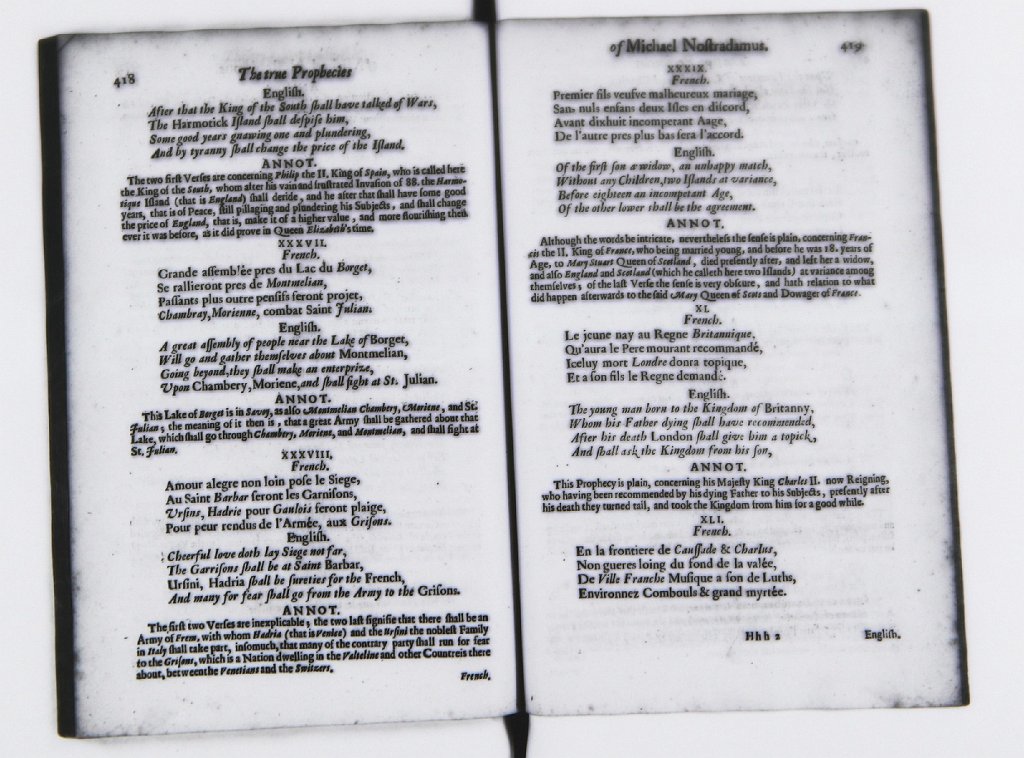 418
The true Prophecies
Engliſh.
After that the King of the South ſhall have talked of Wars,
The Harmotick Iſland ſhall deſpiſe him,
Some good years gnawing one and plundering,
And by tyranny ſhall change the price of the Iſland.
ANNOT.
The two firſt Verſes are concerning Philip the II. King of Spain, who is called here
the King of the South, whom after his vain and fruſtrated Invaſion of 88. the Harmo-
tique Iſland (that is England) ſhall deride, and he after that ſhall have ſome good
years, that is of Peace, ſtill pillaging and plundering his Subjects, and ſhall change
the price of England, that is, make it of a higher value, and more flouriſhing then
ever it was before, as it did prove in Queen Elizabeth's time.
XXXVII.
French.
Grande aſſemblée pres du Lac du Borget,
Se rallieront pres de Montmelian,
Paſſants plus outre penſifs feront projet,
Chambray, Morienne, combat Saint Julian.
Engliſh.
A great aſſembly of people near the Lake of Borget,
Will go and gather themſelves about Montmelian,
Going beyond, they ſhall make an enterprize,
Upon Chambery, Moriene, and ſhall fight at St. Julian.
ANNOT.
This Lake of Borget is in Savoy, as alſo Montmelian Chambery, Moriene, and St.
Julian; the meaning of it then is, that a great Army ſhall be gathered about that
Lake, which ſhall go through Chambery, Moriene, and Montmelian, and ſhall fight at
St. Julian.
XXXVIII.
French.
Amour alegre non loin poſe le Siege,
Au Saint Barbar feront les Garniſons,
Urſins, Hadrie pour Gaulois feront plaige,
Pour peur rendus de l'Armée, aux Griſons.
Engliſh.
Cheerful love doth lay Siege not far,
The Garriſons ſhall be at Saint Barbar,
Urſini, Hadria ſhall be ſureties for the French,
And many for fear ſhall go from the Army to the Griſons.
ANNOT.
The firſt two Verſes are inexplicable, the two laſt ſignifie that there ſhall be an
Army of Frem, with whom Hadria (that is Venice) and the Urſini the nobleſt Family
in Italy ſhall take part, inſomuch, that many of the contrary party ſhall run for fear
to the Griſons, which is a Nation dwelling in the Valteline and other Countreis there
about, between the Venetians and the Switzers.
French.
of Michael Noſtradamus.
419
XXXIX.
French.
Premier fils veufve malheureux mariage,
Sans nuls enfans deux Iſles en diſcord,
Avant dixhuit incompetant Aage,
De l'autre pres plus bas ſera l'accord.
Engliſh.
Of the firſt ſon a widow, an unhappy match,
Without any Children, two Iſlands at variance,
Before eighteen an incompetant Age,
Of the other lower ſhall be the agreement.
ANNOT.
Although the words be intricate, nevertheleſs the ſenſe is plain, concerning Fran-
cis the II. King of France, who being married young, and before he was 18. years of
Age, to Mary Stuart Queen of Scotland, died preſently after, and left her a widow,
and alſo England and Scotland (which he calleth here two Iſlands) at variance among
themſelves; of the laſt Verſe the ſenſe is very obſcure, and hath relation to what
did happen afterwards to the ſaid Mary Queen of Scots and Dowager of France.
XL.
French.
Le jeune nay au Regne Britannique,
Qu'aura le Pere mourant recommandé,
Iceluy mort Londre donra topique,
Et a ſon fils le Regne demandé.
Engliſh.
The young man born to the Kingdom of Britanny,
Whom his Father dying ſhall have recommended,
After his death London ſhall give him a topick,
And ſhall ask the Kingdom from his ſon,
ANNOT.
This Prophecy is plain, concerning his Majeſty King Charles II. now Reigning,
who having been recommended by his dying Father to his Subjects, preſently after
his death they turned tail, and took the Kingdom from him for a good while.
XLI.
French.
En la frontiere de Cauſſade & Charlus,
Non gueres loing du fond de la valée,
De Ville Franche Muſique a ſon de Luths,
Environnez Combouls & grand myrtée.
Hhh 2
Engliſh.